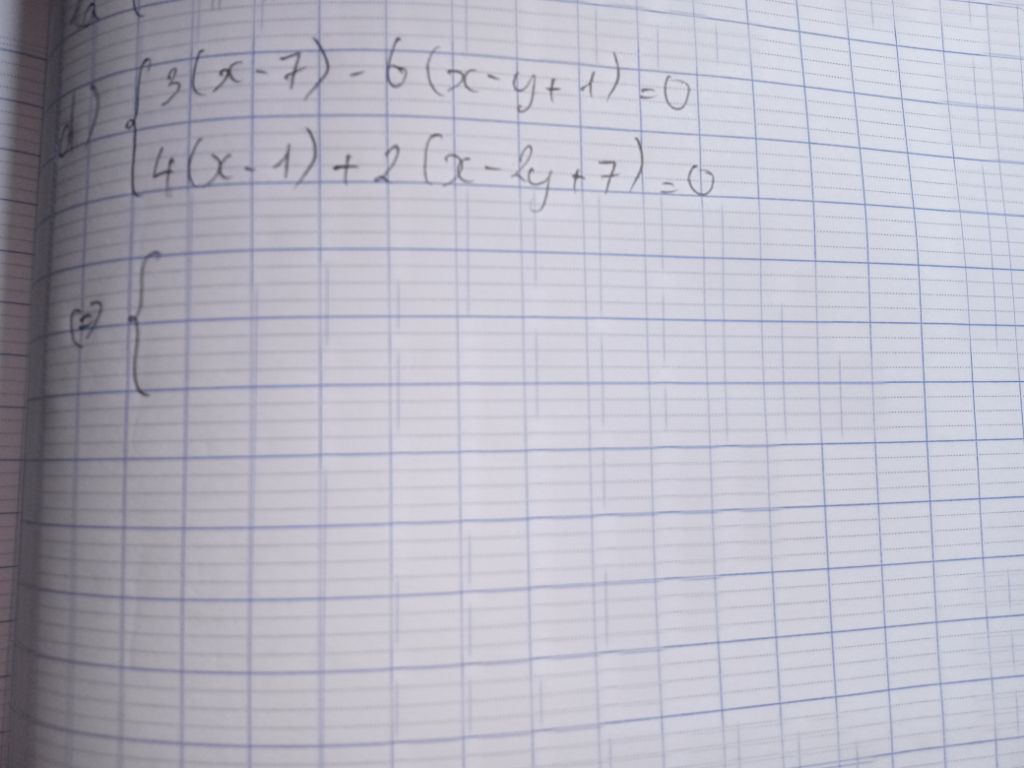 d) { 3(x-7) - 6(x-y+1) = 0
4(x-1) + 2(x-2y+7) = 0
(=) {